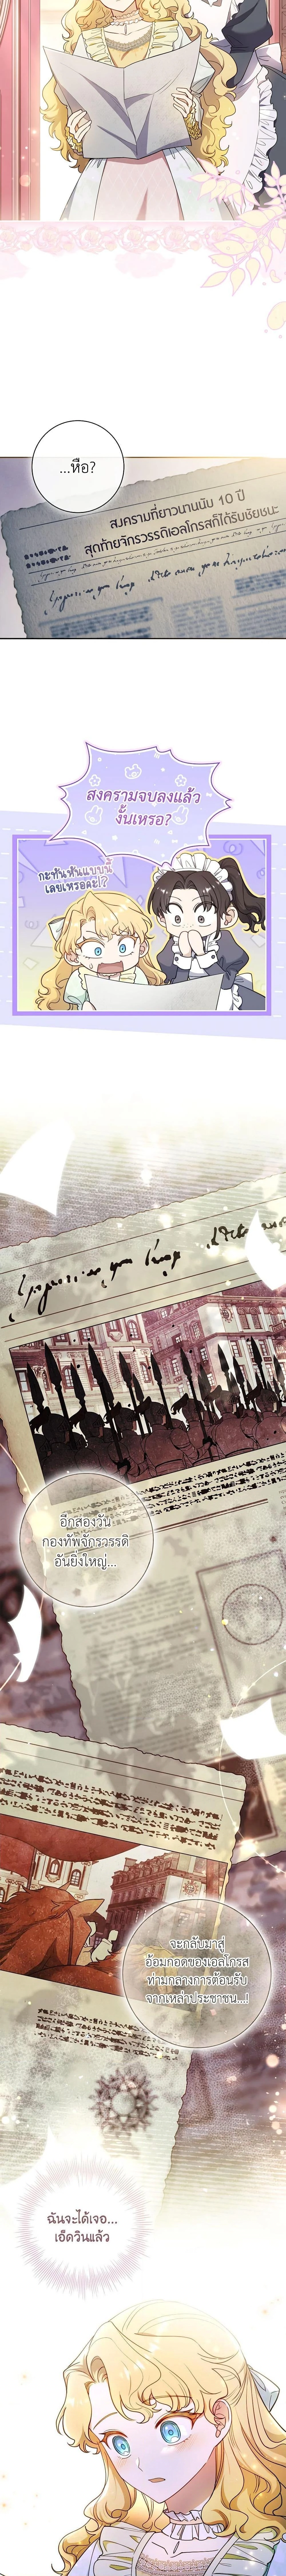 ...หือ?
สงครามที่ยาวนานนับ 10 ปี
สุดท้ายจักรวรรดิเอลโกรสก็ได้รับชัยชนะ
สงครามจบลงแล้ว
งั้นเหรอ?
กะทันหันแบบนี้
เลยเหรอคะ!?
อีกสองวัน
กองทัพจักรวรรดิ
อันยิ่งใหญ่...
จะกลับมาสู่
อ้อมกอดของเอลโกรส
ท่ามกลางการต้อนรับ
จากเหล่าประชาชน...!
ฉันจะได้เจอ...
เอ็ดวินแล้ว